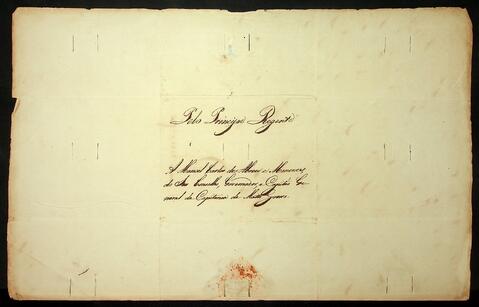 Pelo Principe Regente
A Manoel Carlos de Abreu e Menezes,
do Seu Conselho, Governador, e Capitão Ge-
neral da Capitania de Mato grosso.